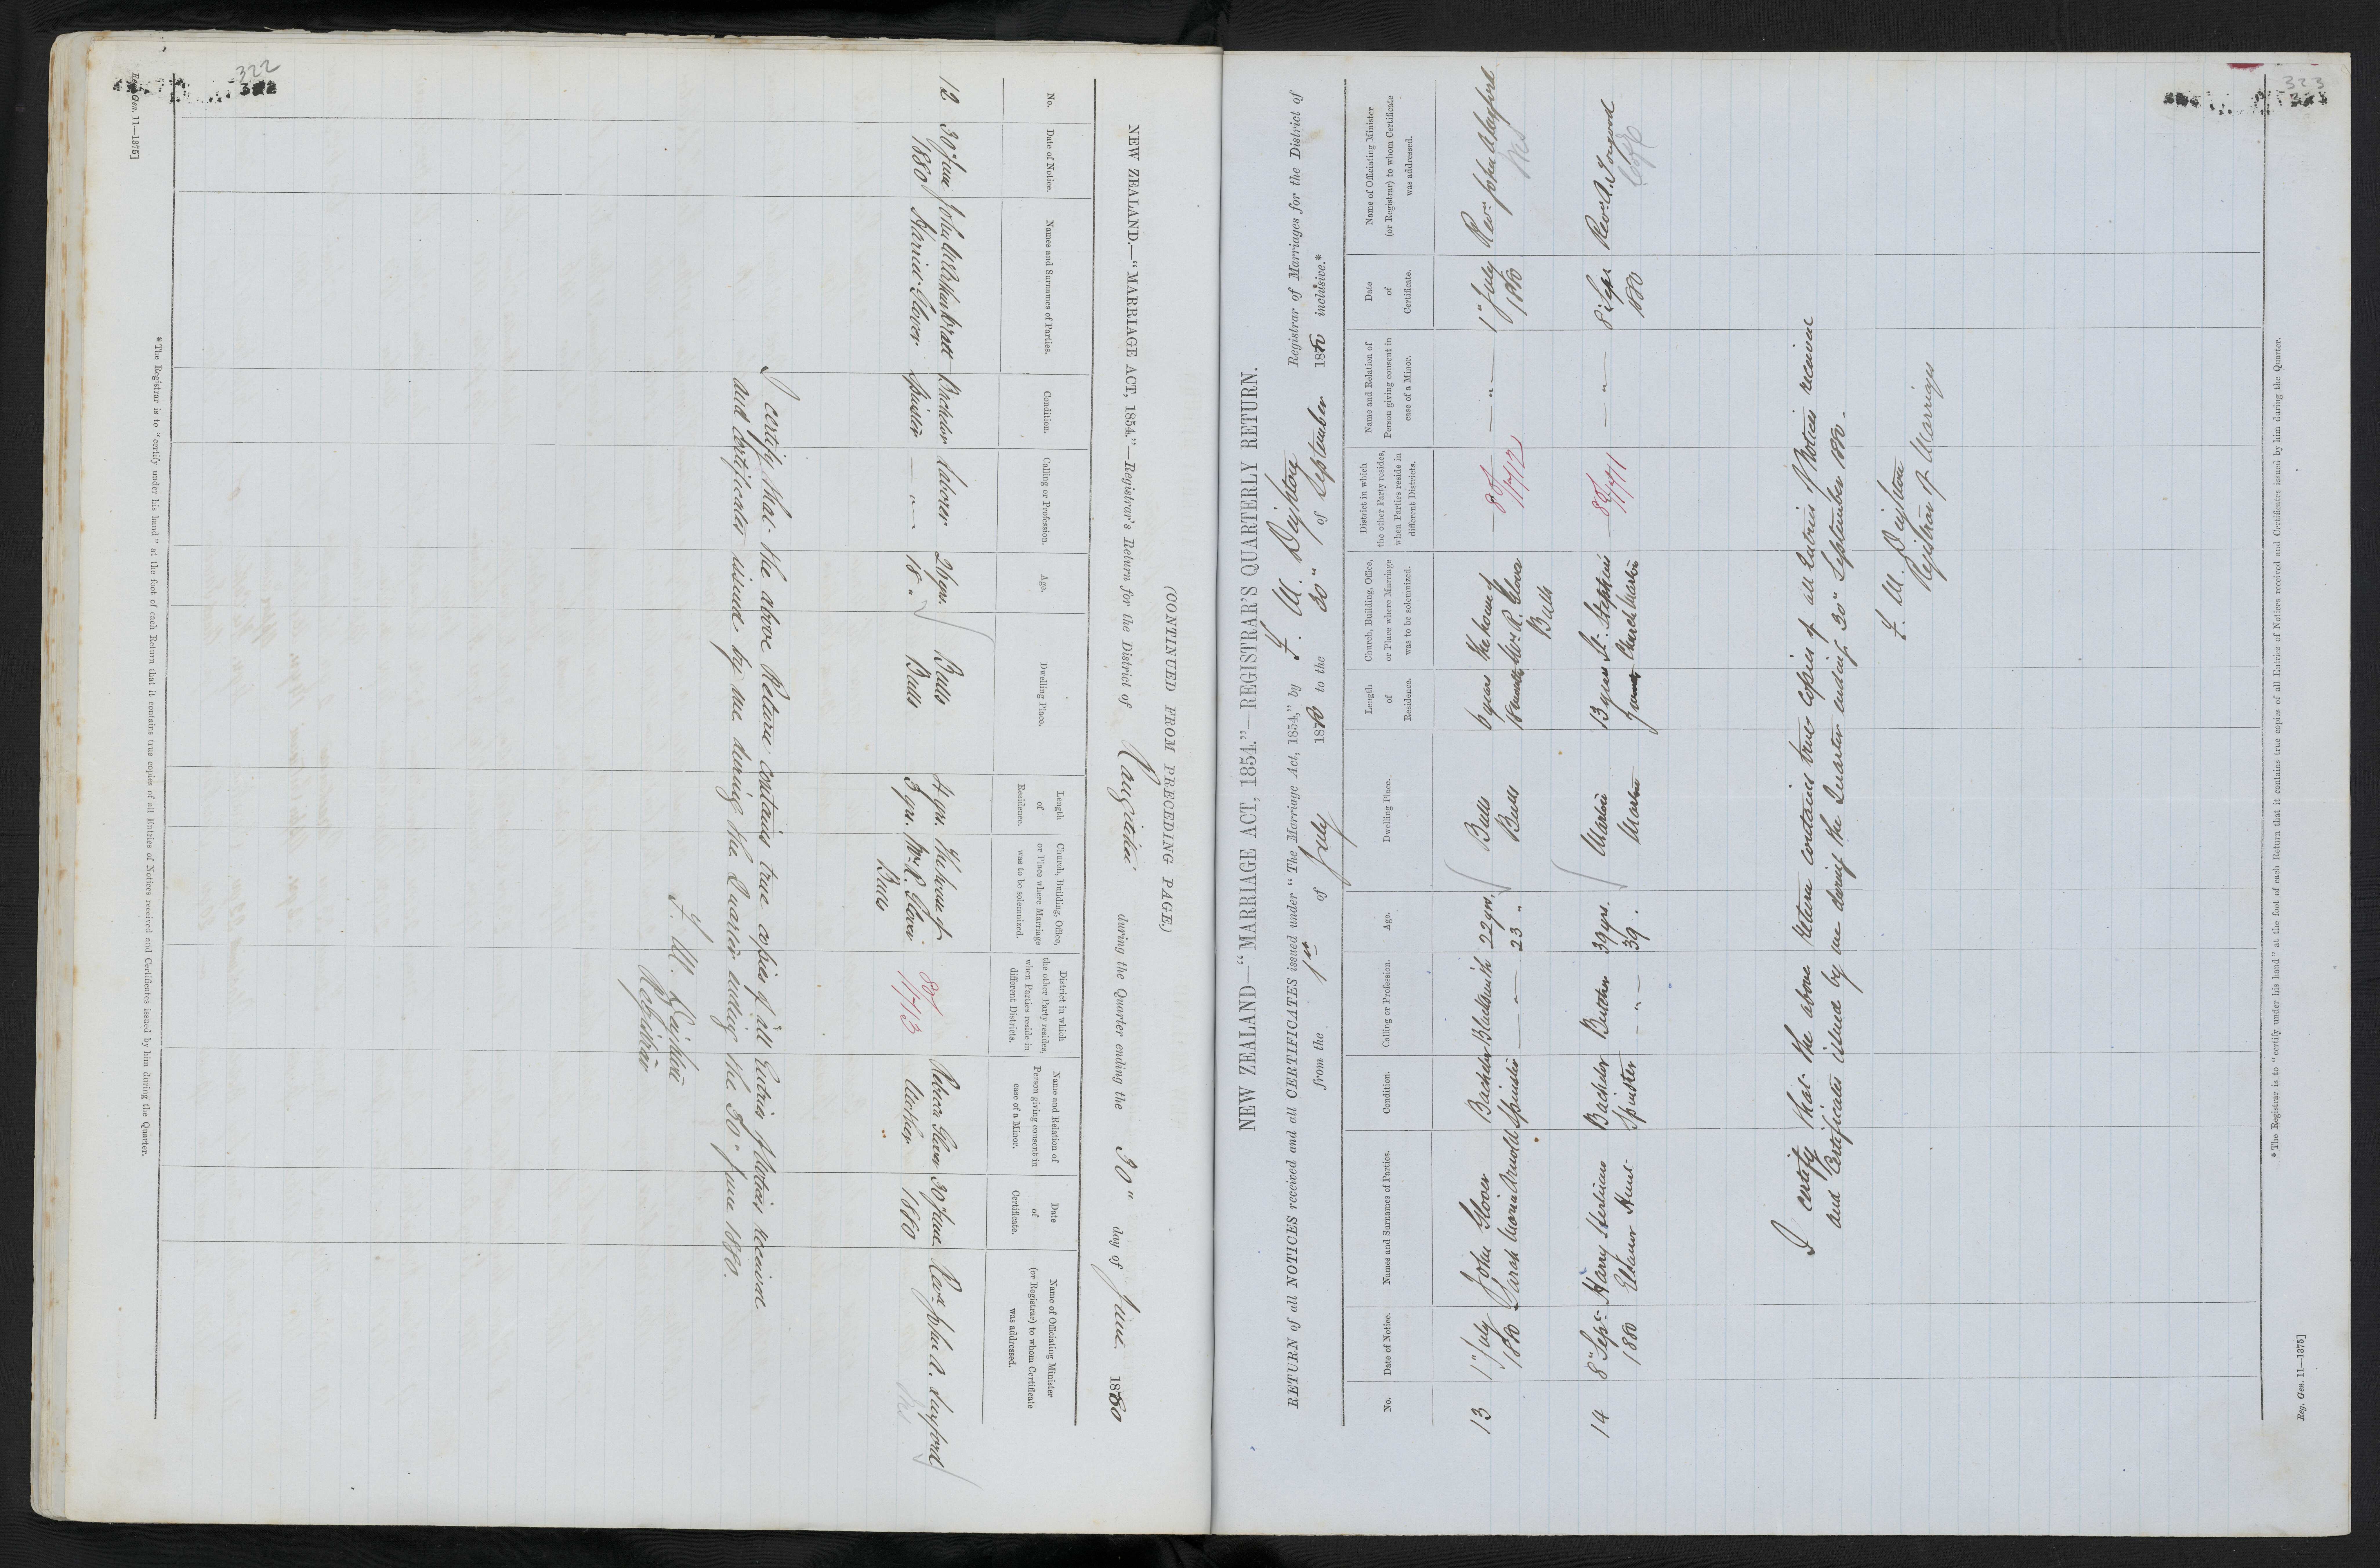 322
(CONTINUED FROM PRECEDING PAGE.)
NEW ZEALAND.—“MARRIAGE ACT, 1854.”—Registrar's Return for the District of Rangitikei during the Quarter ending the 30" day of June 1880
No. Date of Notice. Names and Surnames of Parties. Condition. Calling or Profession. Age. Dwelling Place. Length of Residence. Church, Building, Office, or Place where Marriage was to be solemnized. District in which the other Party resides, when Parties reside in different Districts. Name and Relation of Person giving consent in case of a Minor. Date of Certificate. Name of Officiating Minister (or Registrar) to whom Certificate was addressed.
12 30 June John Bratt Bachelor Laborer 26 yrs. Bulls 4 yrs. The house of 80/ Rebecca Glover 30 June Revd. John A. Luxford
1880 Harriet Glover Spinster — " — 18 " Bulls 3 yrs. Mr. R. Glover 1713 Mother 1880
Bulls
I certify that the above Return contains true copies of all Entries of Notices received
and Certificates issued by me during the Quarter ending the 30" June 1880.
F. M. Deighton
Registrar
*The Registrar is to “certify under his hand” at the foot of each Return that it contains true copies of all Entries of Notices received and Certificates issued by him during the Quarter.
Reg. Gen. 11—1375]
323
NEW ZEALAND—“MARRIAGE ACT, 1854.”—REGISTRAR'S QUARTERLY RETURN.
RETURN of all NOTICES received and all CERTIFICATES issued under “The Marriage Act, 1854,” by F. M. Deighton Registrar of Marriages for the District of
from the 1st of July 1880 to the 30" of September 1880 inclusive.*
No. Date of Notice. Names and Surnames of Parties. Condition. Calling or Profession. Age. Dwelling Place. Length of Residence. Church, Building, Office, or Place where Marriage was to be solemnized. District in which the other Party resides, when Parties reside in different Districts. Name and Relation of Person giving consent in case of a Minor. Date of Certificate. Name of Officiating Minister (or Registrar) to whom Certificate was addressed.
13 1" July John Glover Bachelor Blacksmith 22 yrs. Bulls 6 years The house of 80/ — " — 1" July Revd. John A Luxford
1880 Sarah Maria Arnold Spinster — " — 23 " Bulls 18 months Mr. R. Glover 1712 1880
Bulls
14 8" Sept. Harry Stribling Bachelor Butcher 39 yrs. Marton 13 years St. Stephens 80/ — " — 8 Sept Revd. A. Towgood
1880 Eleanor Hunt Spinster — " — 39 . Marton Church Marton 1771 1880
I certify that the above Return contains true copies of all Entries of Notices received
and Certificates issued by me during the Quarter ending 30" September 1880.
F. M. Deighton
Registrar of Marriages
*The Registrar is to “certify under his hand” at the foot of each Return that it contains true copies of all Entries of Notices received and Certificates issued by him during the Quarter.
Reg. Gen. 11—1375]